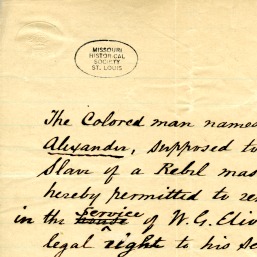 MISSOURI
HISTORICAL
SOCIETY
ST. LOUIS
The Colored man named
Alexander, supposed to
Slave of a Rebel mas
hereby permitted to re
in the house service of W. G. Elio
legal right to his se